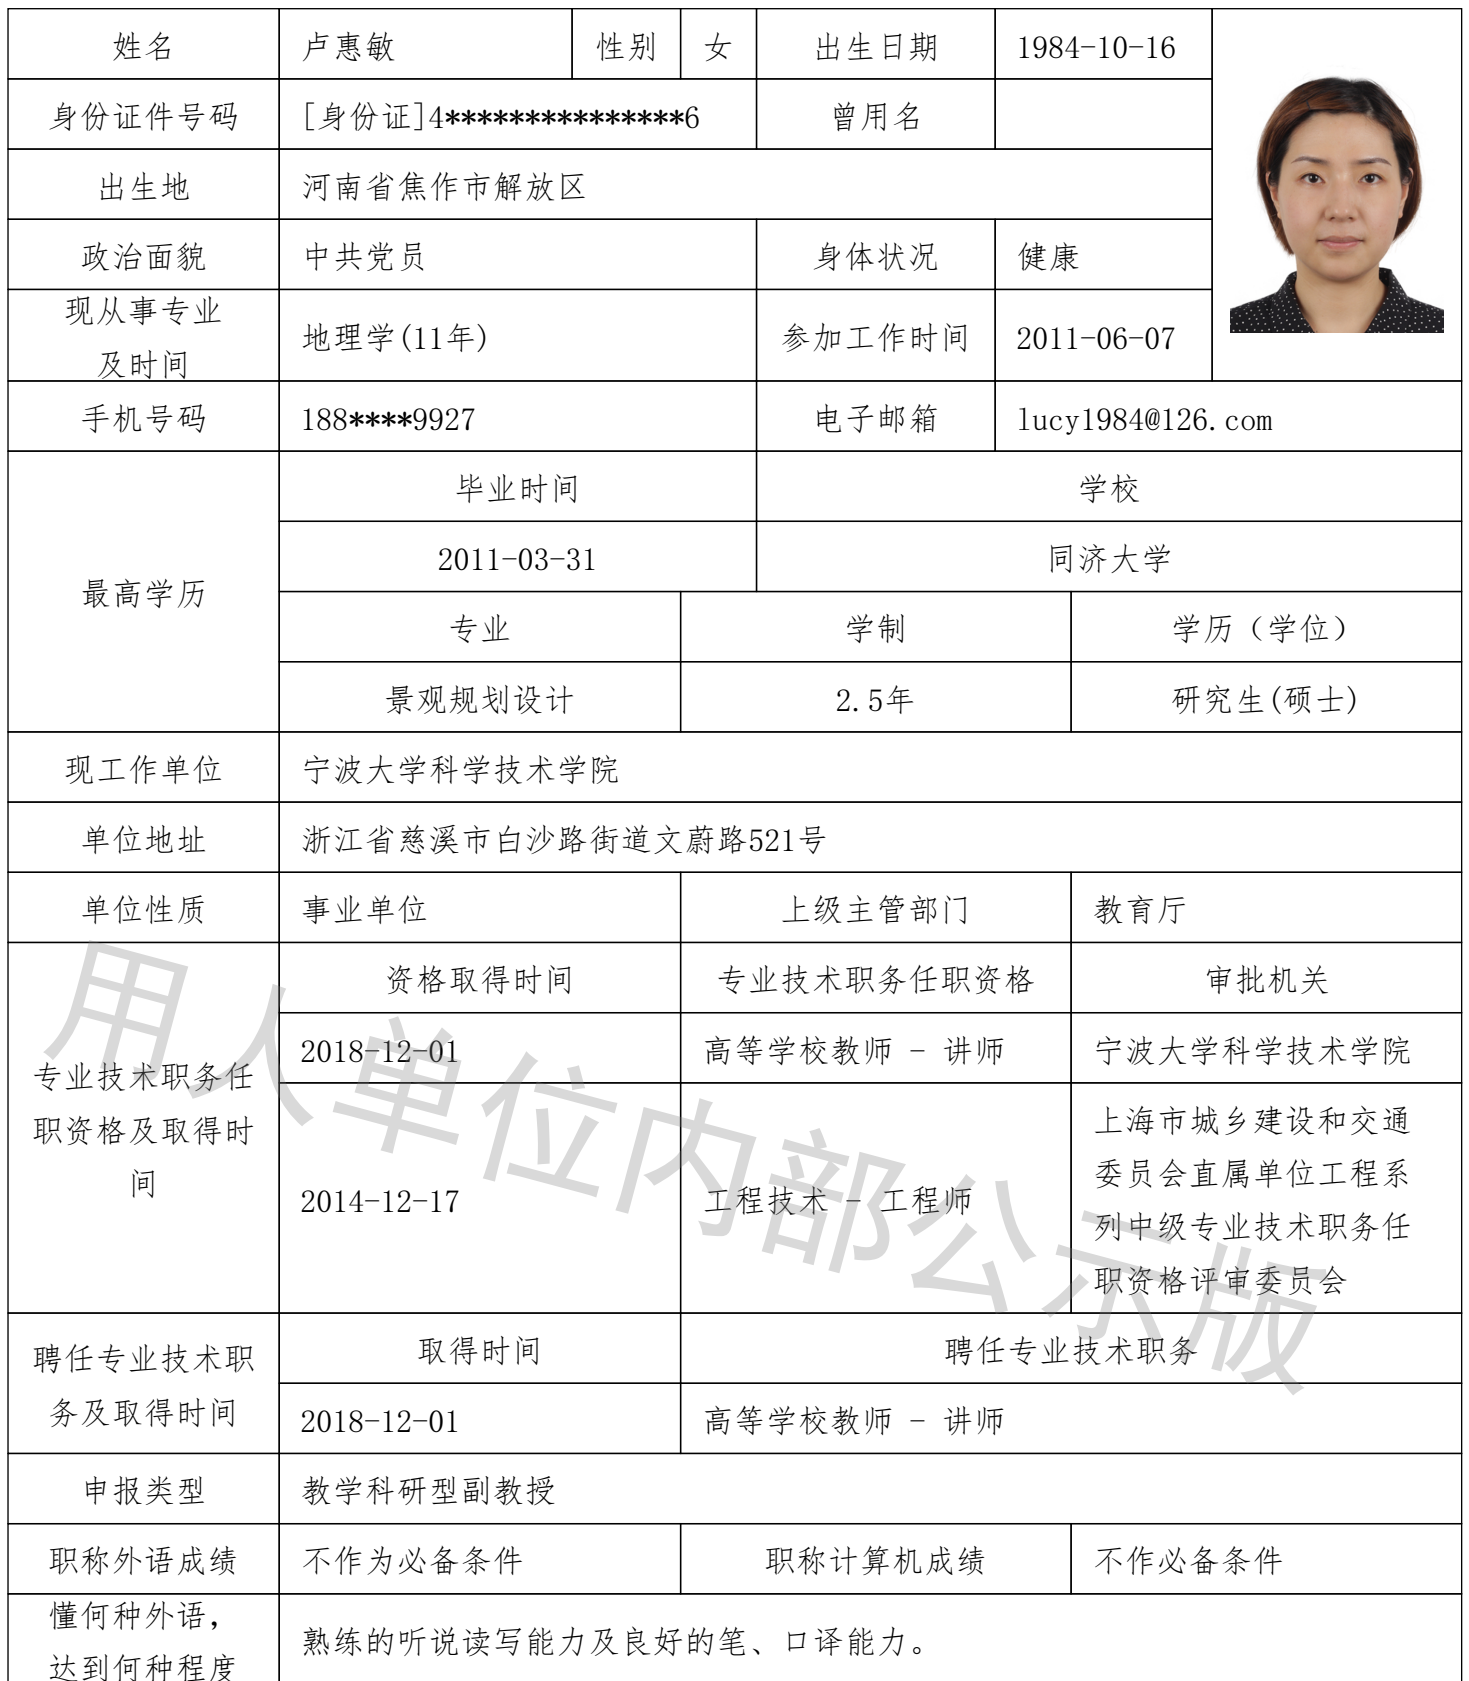 姓名 卢惠敏 性别 女 出生日期 1984-10-16
身份证件号码 [身份证]4***************6 曾用名
出生地 河南省焦作市解放区
政治面貌 中共党员 身体状况 健康
现从事专业
及时间
地理学(11年) 参加工作时间 2011-06-07
手机号码 188****9927 电子邮箱 lucy1984@126.com
最高学历
毕业时间 学校
2011-03-31 同济大学
专业 学制 学历（学位）
景观规划设计 2.5年 研究生(硕士)
现工作单位 宁波大学科学技术学院
单位地址 浙江省慈溪市白沙路街道文蔚路521号
单位性质 事业单位 上级主管部门 教育厅
专业技术职务任
职资格及取得时
间
资格取得时间 专业技术职务任职资格 审批机关
2018-12-01 高等学校教师 - 讲师 宁波大学科学技术学院
2014-12-17 工程技术 - 工程师
上海市城乡建设和交通
委员会直属单位工程系
列中级专业技术职务任
职资格评审委员会
聘任专业技术职
务及取得时间
取得时间 聘任专业技术职务
2018-12-01 高等学校教师 - 讲师
申报类型 教学科研型副教授
职称外语成绩 不作为必备条件 职称计算机成绩 不作必备条件
懂何种外语，
达到何种程度
熟练的听说读写能力及良好的笔、口译能力。
用人单位内部公示版